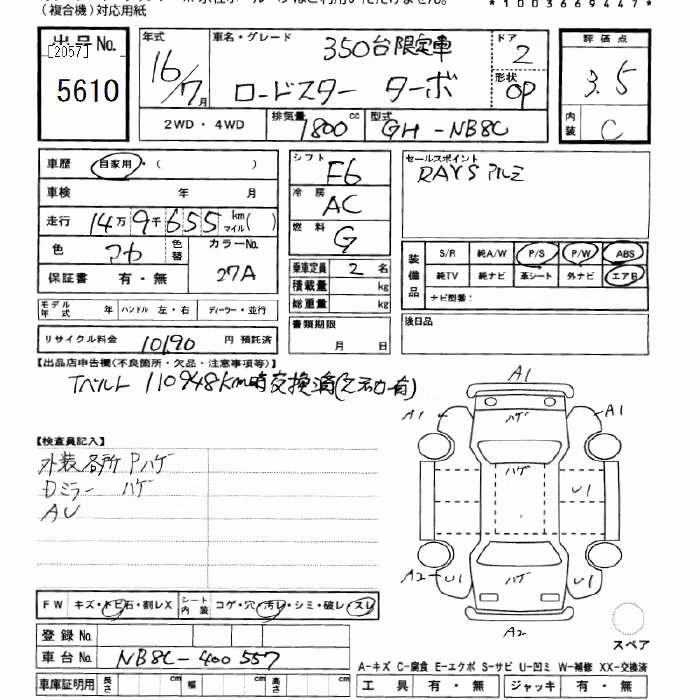 (複合機)対応用紙
*1003669447*
出品No.
[2057]
5610
年式
16/7月
車名・グレード
350台限定車
ロードスター ターボ
ドア
2
形状
OP
評価点
3.5
内装
C
2WD・4WD
排気量
1800 cc
型式
GH-NB8C
車歴 自家用・( )
車検 年 月
走行 14万9千655 km マイル( )
色 アカ 色替
カラーNo.
27A
保証書 有・無
シフト
F6
冷房
AC
燃料
G
乗車定員 2 名
積載量 kg
総重量 kg
書類期限
月 日
セールスポイント
RAYSアルミ
装備品
S/R 純A/W P/S P/W ABS
純TV 純ナビ 革シート 外ナビ エアB
ナビ型番:
後日品
モデル年式 年 ハンドル 左・右 ディーラー・並行
リサイクル料金 10190 円 預託済
【出品店申告欄(不良箇所・欠品・注意事項等)】
Tベルト 110948km時交換済(ステッカー有)
【検査員記入】
外装各所Pハゲ
Dミラー ハゲ
AU
A1
A1
A1
ハゲ
ハゲ
U1
ハゲ
A2 U1
U1
A2
スペア
FW キズ・トビ石・割レX
シート内装 コゲ・穴・汚レ・シミ・破レ・スレ
登録No.
車台No. NB8C-400557
車庫証明用 長さ cm 幅 cm 高さ cm
A-キズ C-腐食 E-エクボ S-サビ U-凹ミ W-補修 XX-交換済
工具 有・無 ジャッキ 有・無